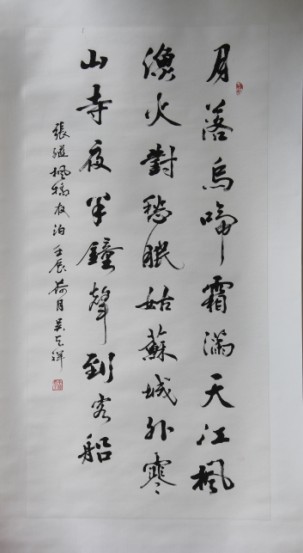 月落烏啼霜滿天江楓
漁火對愁眠姑蘇城外寒
山寺夜半鐘聲到客船
張繼楓橋夜泊 壬辰荷月吳